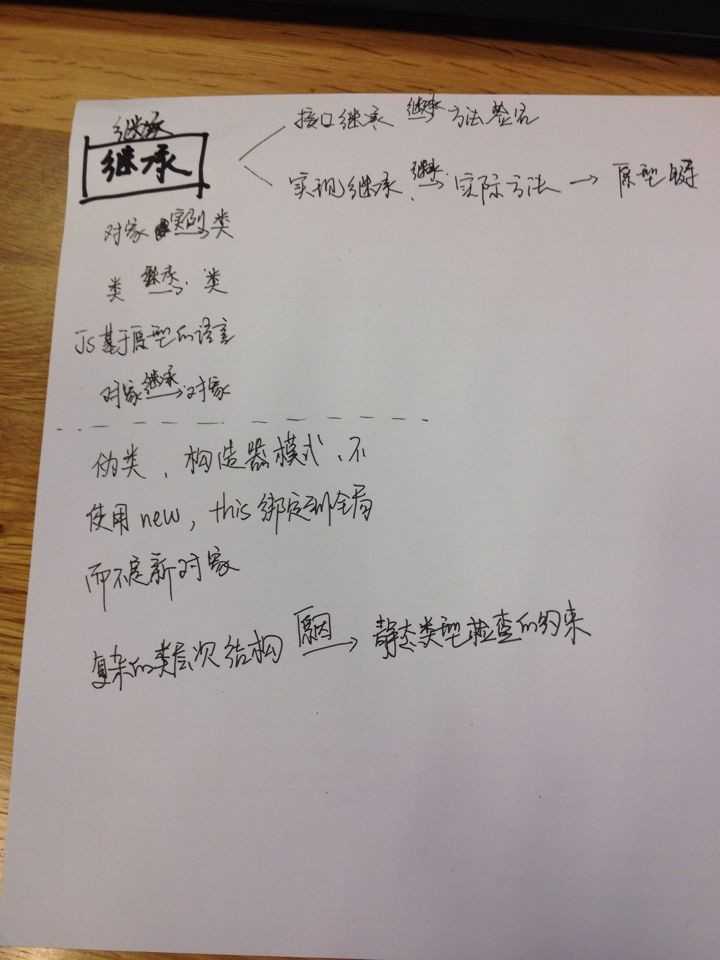 继承
继承
接口继承 继承→ 方法签名
实现继承 继承→ 实际方法 → 原型链
对象 实例→ 类
类 继承→ 类
JS基于原型的语言
对象 继承→ 对象
伪类、构造器模式、不
使用new，this绑定到全局
而不是新对象
复杂的类层次结构 原因→ 静态类型检查的约束